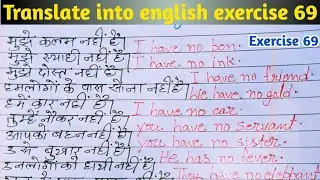 Translate into english exercise 69
Exercise 69
मुझे कलम नहीं है। I have no pen.
मुझे स्याही नहीं है। I have no ink.
मुझे दोस्त नहीं है। I have no friend.
हमलोगों के पास सोना नहीं है। We have no gold.
हमें कार नहीं है। I have no car.
तुम्हें नौकर नहीं है। you have no servant
आपको बहन नहीं है। you have no sister.
उसे बुखार नहीं है। He has no fever.
उनलोगों को हाथी नहीं है। They have no elephant